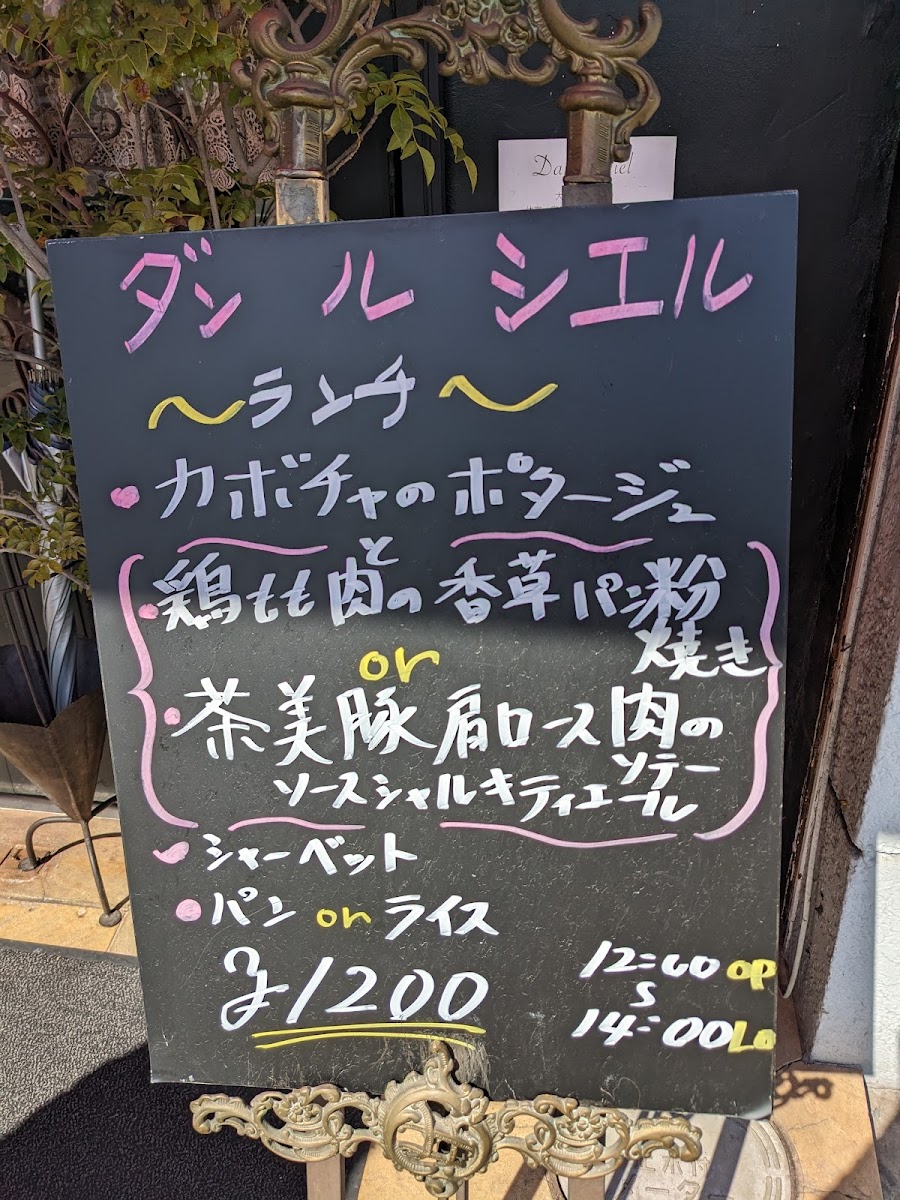 ダン ル シエル
〜ランチ〜
・カボチャのポタージュ
・鶏もも肉との香草パン粉
焼き
or
・茶美豚肩ロース肉の
ソテー
ソースシャルキティエール
・シャーベット
・パン or ライス
¥1200
12:00 OP
S
14:00 Lo